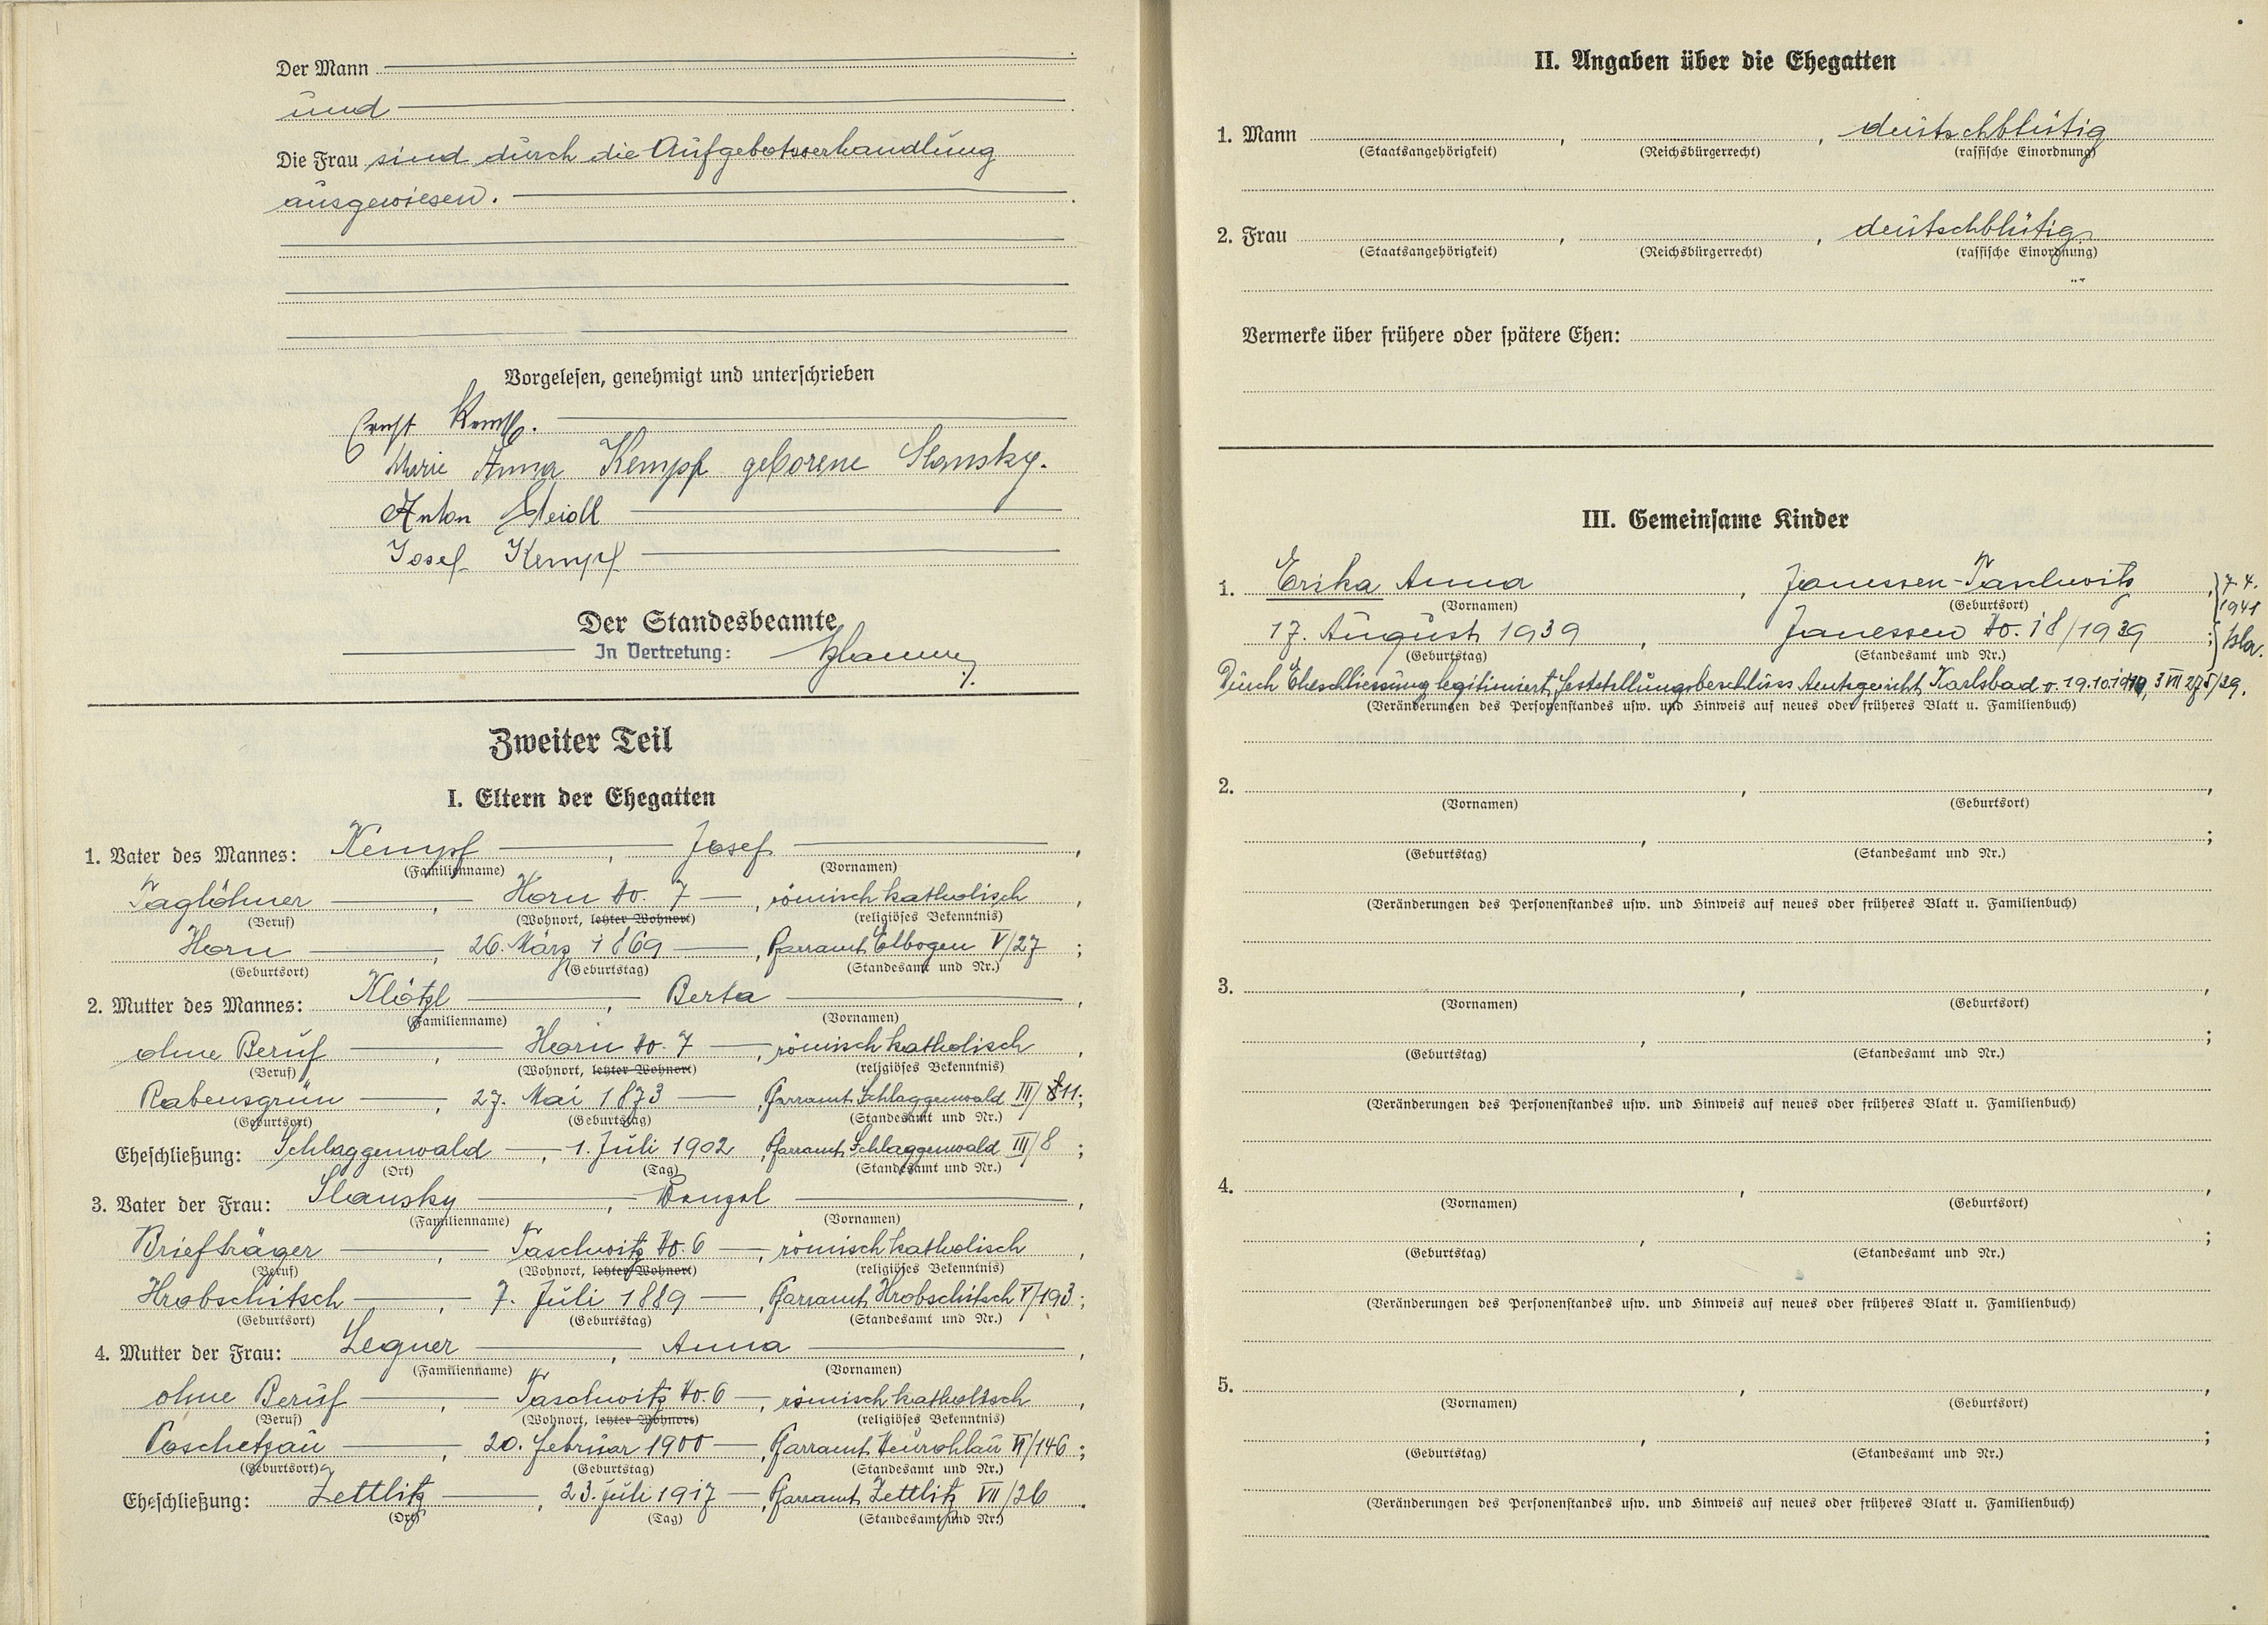 Der Mann
und
Die Frau sind durch die Aufgebotsverhandlung
ausgewiesen.
Vorgelesen, genehmigt und unterschrieben
Ernst Kempf.
Marie Anna Kempf geborene Slansky.
Anton
Josef Kempf
Der Standesbeamte
In Vertretung:
Zweiter Teil
I. Eltern der Ehegatten
1. Vater des Mannes: Kempf, Josef,
(Familienname) (Vornamen)
Taglöhner, Horn No. 7, römisch katholisch,
(Beruf) (Wohnort, letzter Wohnort) (religiöses Bekenntnis)
Horn, 26. März 1869, Pfarramt Elbogen V/27;
(Geburtsort) (Geburtstag) (Standesamt und Nr.)
2. Mutter des Mannes: Klötzl, Berta,
(Familienname) (Vornamen)
ohne Beruf, Horn No. 7, römisch katholisch,
(Beruf) (Wohnort, letzter Wohnort) (religiöses Bekenntnis)
Rabensgrün, 27. Mai 1873, Pfarramt Schlaggenwald III/11;
(Geburtsort) (Geburtstag) (Standesamt und Nr.)
Eheschließung: Schlaggenwald, 1. Juli 1902, Pfarramt Schlaggenwald III/8;
(Ort) (Tag) (Standesamt und Nr.)
3. Vater der Frau: Slansky, Wenzel,
(Familienname) (Vornamen)
Briefträger, Taschwitz No. 6, römisch katholisch,
(Beruf) (Wohnort, letzter Wohnort) (religiöses Bekenntnis)
Hrobschitsch, 7. Juli 1889, Pfarramt Hrobschitsch V/193;
(Geburtsort) (Geburtstag) (Standesamt und Nr.)
4. Mutter der Frau: Legner, Anna,
(Familienname) (Vornamen)
ohne Beruf, Taschwitz No. 6, römisch katholisch,
(Beruf) (Wohnort, letzter Wohnort) (religiöses Bekenntnis)
Poschetzau, 20. Februar 1900, Pfarramt Neurohlau VI/146;
(Geburtsort) (Geburtstag) (Standesamt und Nr.)
Eheschließung: Zettlitz, 23. Juli 1917, Pfarramt Zettlitz VII/26.
(Ort) (Tag) (Standesamt und Nr.)
II. Angaben über die Ehegatten
1. Mann , , deutschblütig
(Staatsangehörigkeit) (Reichsbürgerrecht) (rassische Einordnung)
2. Frau , , deutschblütig
(Staatsangehörigkeit) (Reichsbürgerrecht) (rassische Einordnung)
Vermerke über frühere oder spätere Ehen:
III. Gemeinsame Kinder
1. Erika Anna, Janessen-Taschwitz, 7.4.
(Vornamen) (Geburtsort) 1941
17. August 1939, Janessen No. 18/1939;
(Geburtstag) (Standesamt und Nr.)
Durch Eheschliessung legitimiert, Feststellungsbeschluss Amtsgericht Karlsbad v. 19.10. 3 VII 275/39.
(Veränderungen des Personenstandes usw. und Hinweis auf neues oder früheres Blatt u. Familienbuch)
2. , ,
(Vornamen) (Geburtsort)
, ;
(Geburtstag) (Standesamt und Nr.)
(Veränderungen des Personenstandes usw. und Hinweis auf neues oder früheres Blatt u. Familienbuch)
3. , ,
(Vornamen) (Geburtsort)
, ;
(Geburtstag) (Standesamt und Nr.)
(Veränderungen des Personenstandes usw. und Hinweis auf neues oder früheres Blatt u. Familienbuch)
4. , ,
(Vornamen) (Geburtsort)
, ;
(Geburtstag) (Standesamt und Nr.)
(Veränderungen des Personenstandes usw. und Hinweis auf neues oder früheres Blatt u. Familienbuch)
5. , ,
(Vornamen) (Geburtsort)
, ;
(Geburtstag) (Standesamt und Nr.)
(Veränderungen des Personenstandes usw. und Hinweis auf neues oder früheres Blatt u. Familienbuch)